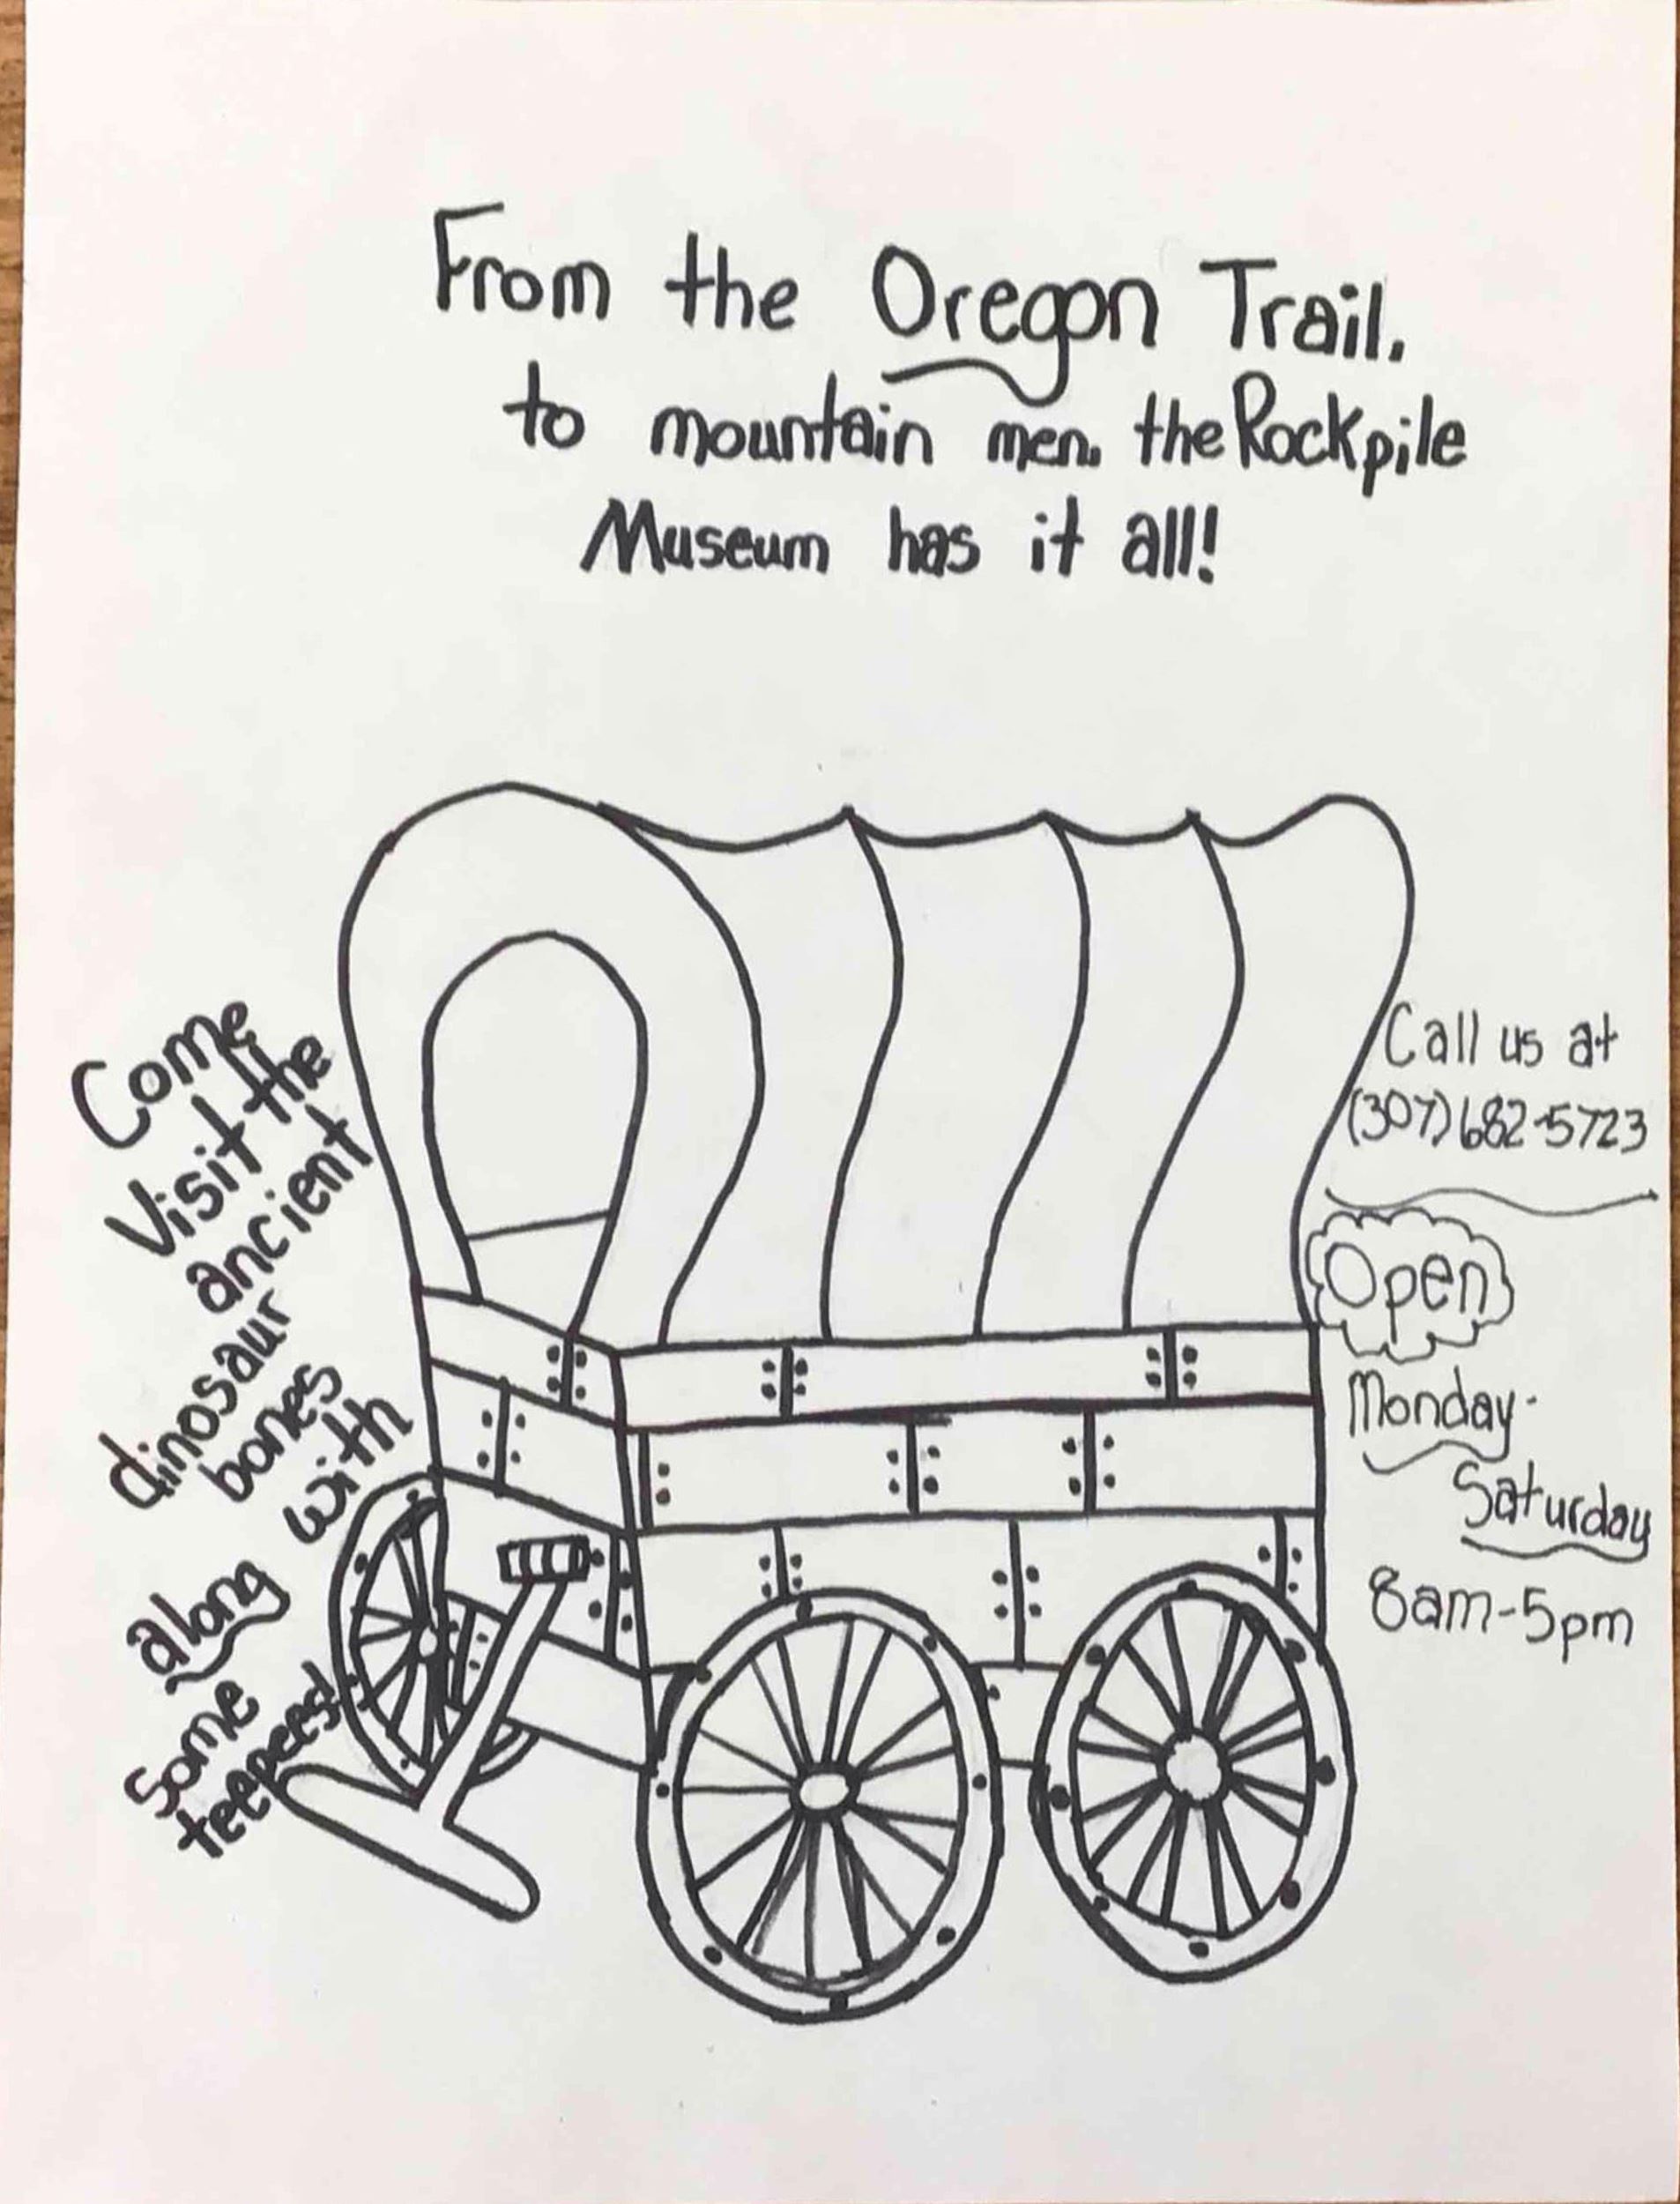 From the Oregon Trail.
to mountain men. the Rockpile
Museum has it all!
Come
Visit the
ancient
dinosaur
bones
with
along
Some
teepees!
Call us at
(307) 682-5723
Open
Monday-
Saturday
8am-5pm